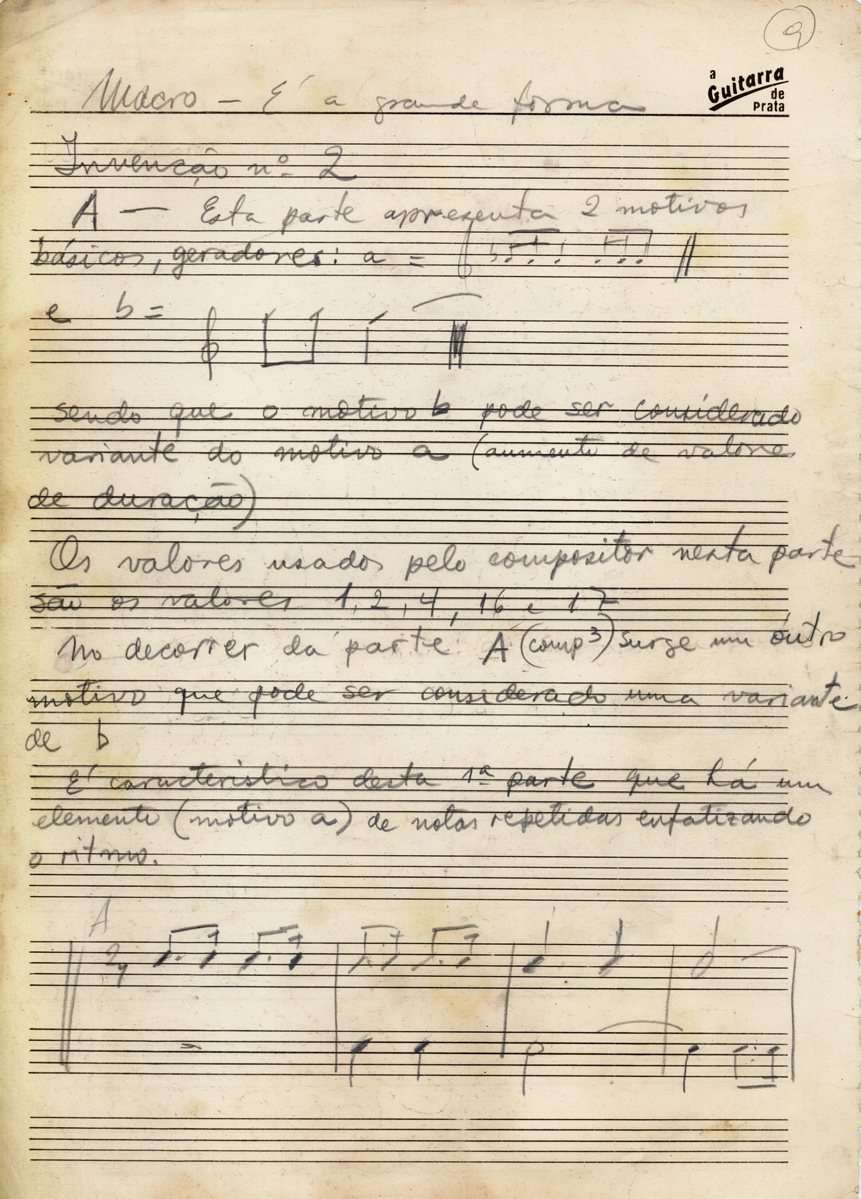 9
a
Guitarra
de
Prata
Macro - É a grande forma
Invenção nº 2
A — Esta parte apresenta 2 motivos
básicos, geradores: a =
e b =
sendo que o motivo b pode ser considerado
variante do motivo a (aumento de valores
de duração)
Os valores usados pelo compositor nesta parte
são os valores 1, 2, 4, 16 e 17
No decorrer da parte A (comp 3) surge um outro
motivo que pode ser considerado uma variante
de b
É característico desta 1ª parte que há um
elemento (motivo a) de notas repetidas enfatizando
o ritmo.
A
2/4